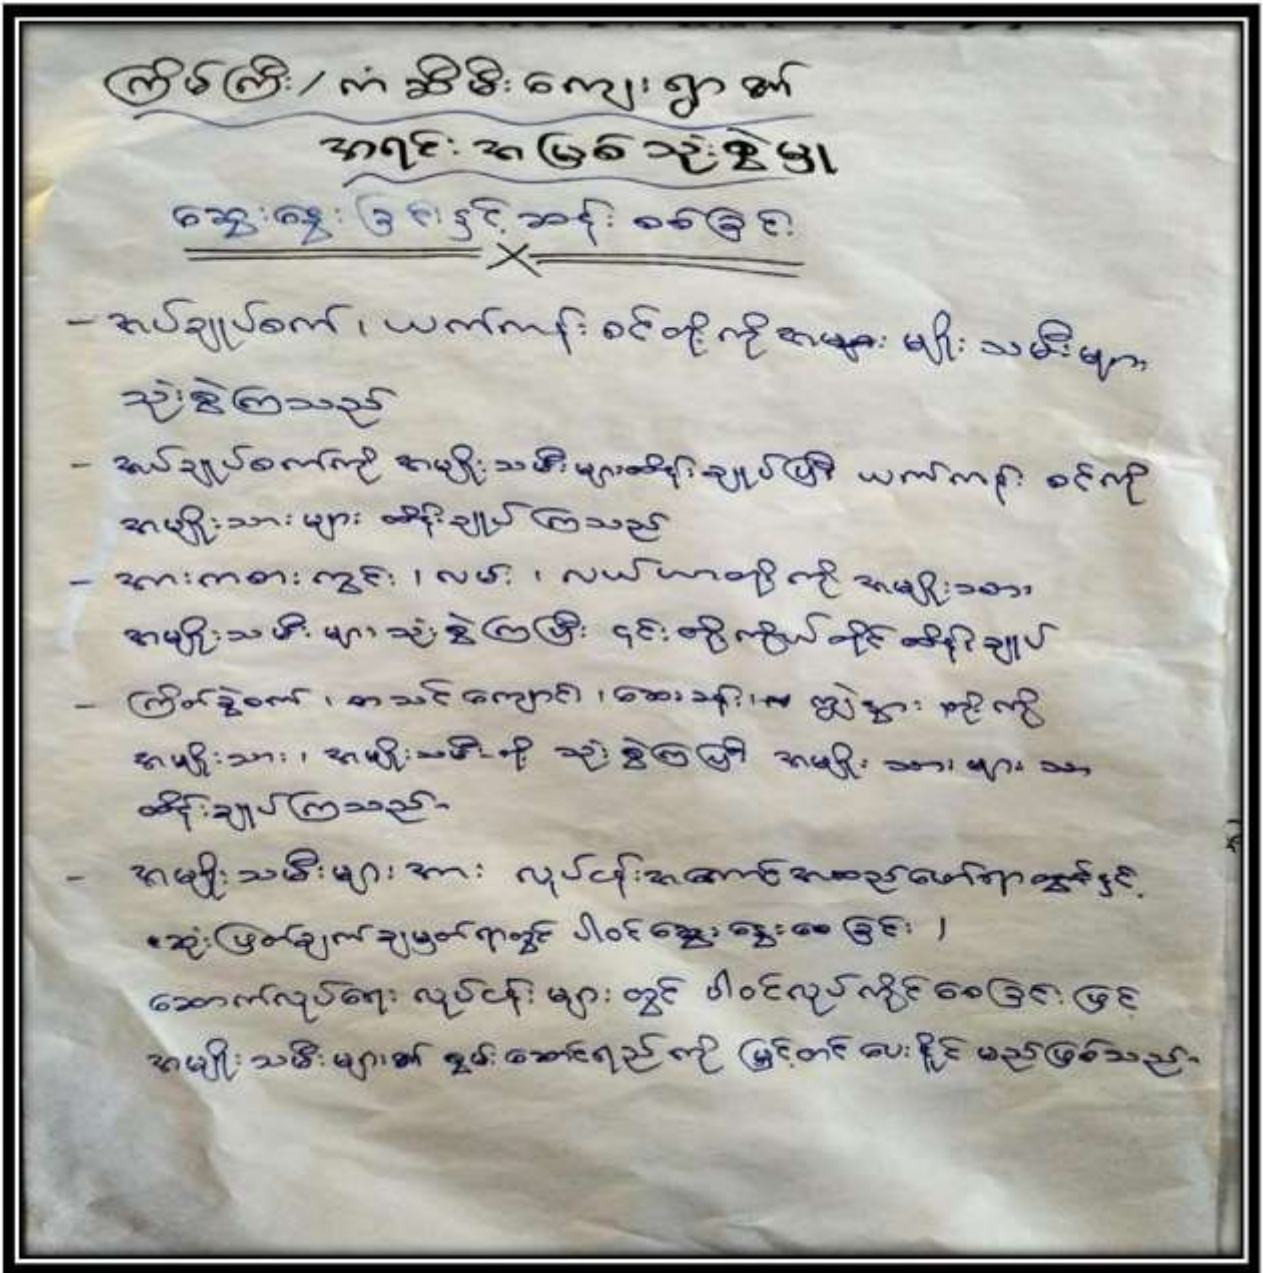 ကြိမ်ကြီး/ကံဆီမီးကျေးရွာ၏
အရင်းအမြစ်သုံးစွဲမှု
ဆွေးနွေးခြင်းနှင့်ဆန်းစစ်ခြင်း
- အပ်ချုပ်စက်၊ ယက်ကန်းစင်တို့ကိုအများ မျိုးသမီးများ
သုံးစွဲကြသည်
- အပ်ချုပ်စက်ကို အမျိုးသမီးများထိန်းချုပ်ပြီး ယက်ကန်း စင်ကို
အမျိုးသားများ ထိန်းချုပ်ကြသည်
- အားကစားကွင်း၊ လမ်း၊ လယ်ယာတို့ကို အမျိုးသား၊
အမျိုးသမီးများသုံးစွဲကြပြီး ၎င်းတို့ကိုယ်တိုင်ထိန်းချုပ်
- ကြိတ်ခွဲစက်၊ စာသင်ကျောင်း၊ ဆေးခန်း၊ ကျွဲနွား တို့ကို
အမျိုးသား၊ အမျိုးသမီးတို့ သုံးစွဲကြပြီး အမျိုးသားများသာ
ထိန်းချုပ်ကြသည်။
- အမျိုးသမီးများအား လုပ်ငန်းအကောင်အထည်ဖော်ရာတွင်နှင့်
ဆုံးဖြတ်ချက်ချမှတ်ရာတွင် ပါဝင်ဆွေးနွေးစေခြင်း၊
ဆောက်လုပ်ရေး လုပ်ငန်းများတွင် ပါဝင်လုပ်ကိုင်စေခြင်းဖြင့်
အမျိုးသမီးများ၏ စွမ်းဆောင်ရည်ကို မြှင့်တင်ပေးနိုင်မည်ဖြစ်သည်။